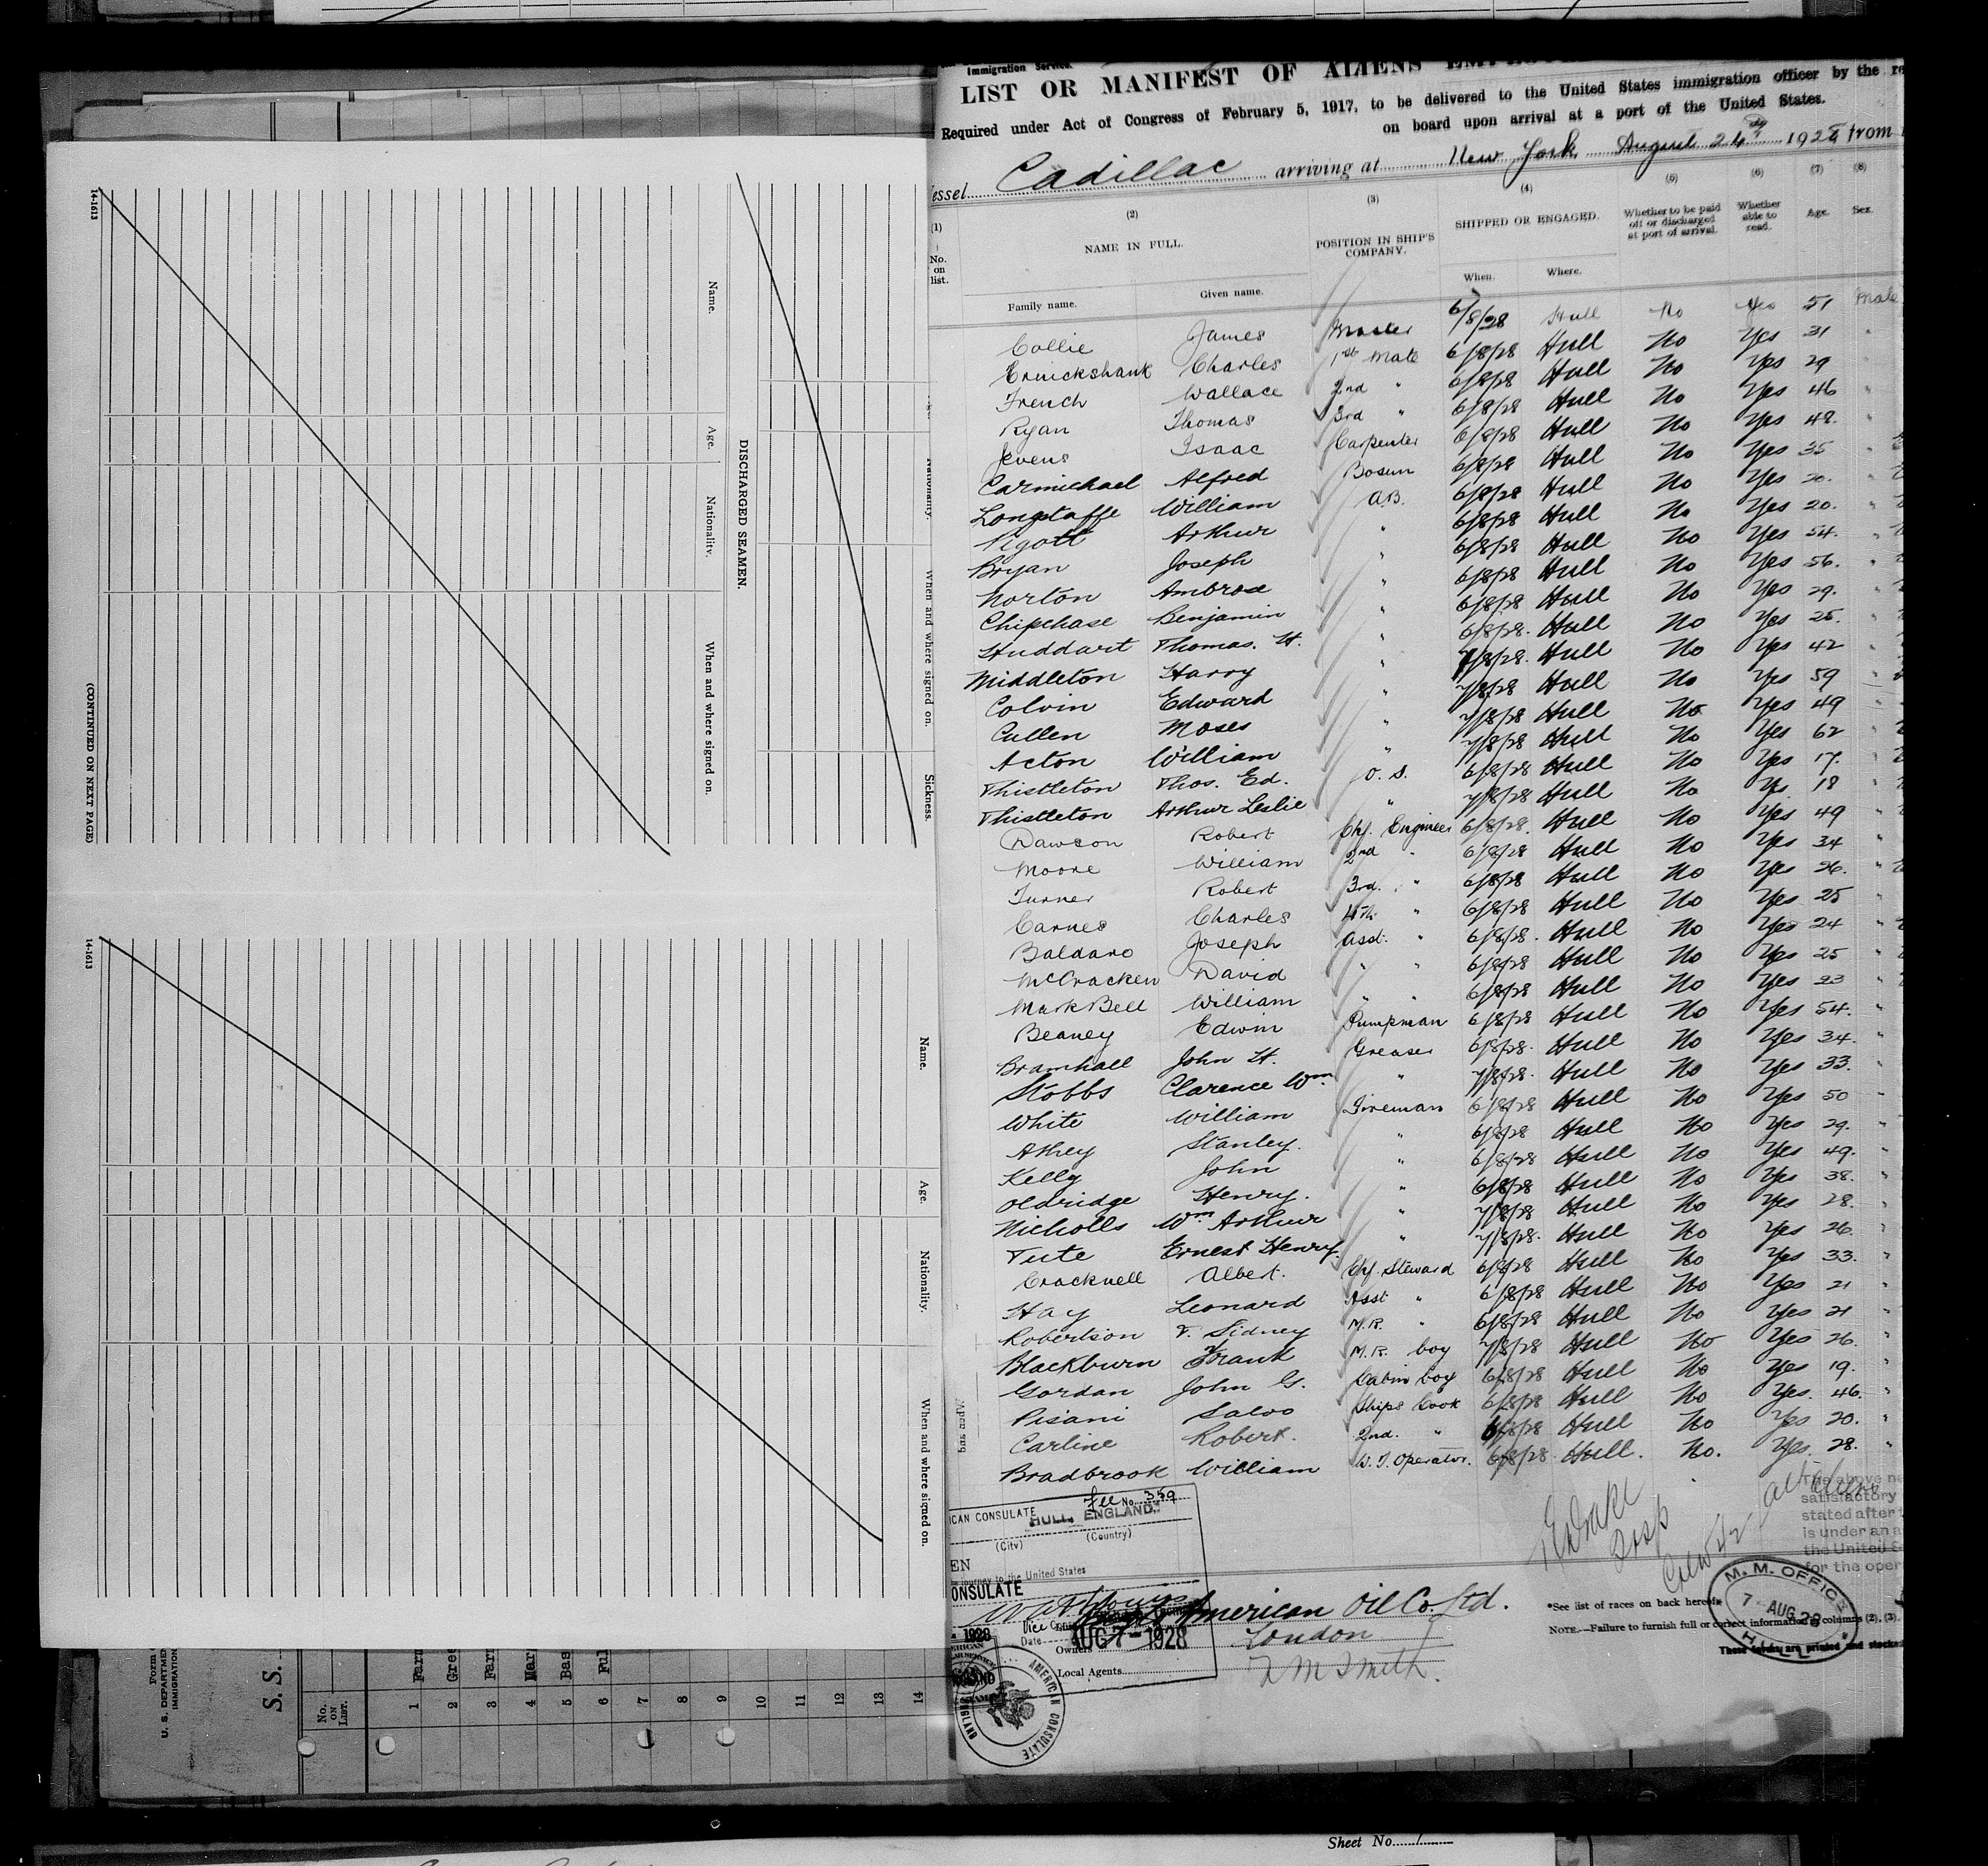 Immigration Service.
LIST OR MANIFEST OF ALIENS
Required under Act of Congress of February 5, 1917, to be delivered to the United States immigration officer by the
on board upon arrival at a port of the United States.
essel Cadillac arriving at New York August 24th 1928 from
(1) (2) (3) (4) (5) (6) (7) (8)
No. on list. NAME IN FULL. POSITION IN SHIP'S COMPANY. SHIPPED OR ENGAGED. Whether to be paid off or discharged at port of arrival. Whether able to read. Age. Sex.
Family name. Given name. When. Where.
Collie James Master 6/8/28 Hull No Yes 51 Male
Cruickshank Charles 1st Mate 6/8/28 Hull No Yes 31 "
French Wallace 2nd " 6/8/28 Hull No Yes 29 "
Ryan Thomas 3rd " 6/8/28 Hull No Yes 46 "
Jevens Isaac Carpenter 6/8/28 Hull No Yes 48. "
Carmichael Alfred Bosun 6/8/28 Hull No Yes 35 "
Longstaffe William A.B. 6/8/28 Hull No Yes 20. "
Pigott Arthur " 6/8/28 Hull No Yes 20. "
Bryan Joseph " 6/8/28 Hull No Yes 54. "
Norton Ambrose " 6/8/28 Hull No Yes 56. "
Chipchase Benjamin " 6/8/28 Hull No Yes 29. "
Studdart Thomas. H. " 6/8/28. Hull No Yes 25. "
Middleton Harry " 7/8/28. Hull No Yes 42 "
Colvin Edward " 7/8/28 Hull No Yes 59 "
Cullen Moses " 7/8/28 Hull No Yes 49 "
Acton William " 7/8/28 Hull No Yes 62 "
Thistleton Thos. Ed. O. S. 6/8/28 Hull No Yes 17. "
Thistleton Arthur Leslie " 7/8/28 Hull No Yes 18 "
Dawson Robert Chf. Engineer 6/8/28. Hull No Yes 49 "
Moore William 2nd " 6/8/28 Hull No Yes 34 "
Turner Robert 3rd. " 6/8/28 Hull No Yes 26. "
Carnes Charles 4th " 6/8/28 Hull No Yes 25 "
Baldaro Joseph Asst. " 6/8/28. Hull No Yes 24 "
McCracken David " " 6/8/28 Hull No Yes 25 "
Mark Bell William " " 6/8/28 Hull No Yes 23 "
Beaney Edwin Pumpman 6/8/28 Hull No Yes 54. "
Bramhall John H. Greaser 6/8/28. Hull No Yes 34. "
Stobbs Clarence Wm. " 7/8/28. Hull No Yes 33. "
White William Fireman 6/8/28 Hull No Yes 50 "
Athey Stanley. " 6/8/28 Hull No Yes 29. "
Kelly John " 6/8/28 Hull No Yes 49. "
Oldridge Henry. " 6/8/28 Hull No Yes 38. "
Nicholls Wm. Arthur " 7/8/28 Hull No Yes 28. "
Tute Ernest Henry. " 7/8/28. Hull No Yes 26. "
Cracknell Albert. Chf. Steward 6/8/28 Hull No Yes 33. "
Hay Leonard Asst " 6/8/28 Hull No Yes 21 "
Robertson T. Sidney M.R. " 6/8/28 Hull No Yes 21 "
Blackburn Frank M.R. boy 7/8/28 Hull No Yes 26. "
Gordan John G. Cabin boy 6/8/28 Hull No Yes 19. "
Pisani Salvo Ships Cook 6/8/28 Hull No Yes. 46. "
Carline Robert. 2nd. " 6/8/28 Hull No Yes 20. "
Bradbrook William W. T. Operator. 6/8/28. Hull. No. Yes. 28. "
Fee No. 359
ICAN CONSULATE
HULL, ENGLAND.
(City) (Country)
EN
journey to the United States
ONSULATE
Vice Consul
Date AUG 7 - 1928
1928
American Oil Co. Ltd.
Owners London
Local Agents
AMERICAN CONSULATE
The above
satisfactory
stated after
is under an
the United
for the oper
M. M. OFFICE
7 - AUG 28
*See list of races on back hereof.
NOTE.—Failure to furnish full or correct information in columns (2), (3),
14-1613
Name. Age. Nationality. When and where signed on.
DISCHARGED SEAMEN.
Nationality. When and where signed on. Sickness.
(CONTINUED ON NEXT PAGE)
14-1613
Name. Age. Nationality. When and where signed on.
Form
U. S. DEPARTMEN
IMMIGRATION
S. S.
No. ON LIST.
1 Farr
2 Gre
3 Farr
4 Mar
5 Bas
6 Ful
7
8
9
10
11
12
13
14
Sheet No. 1